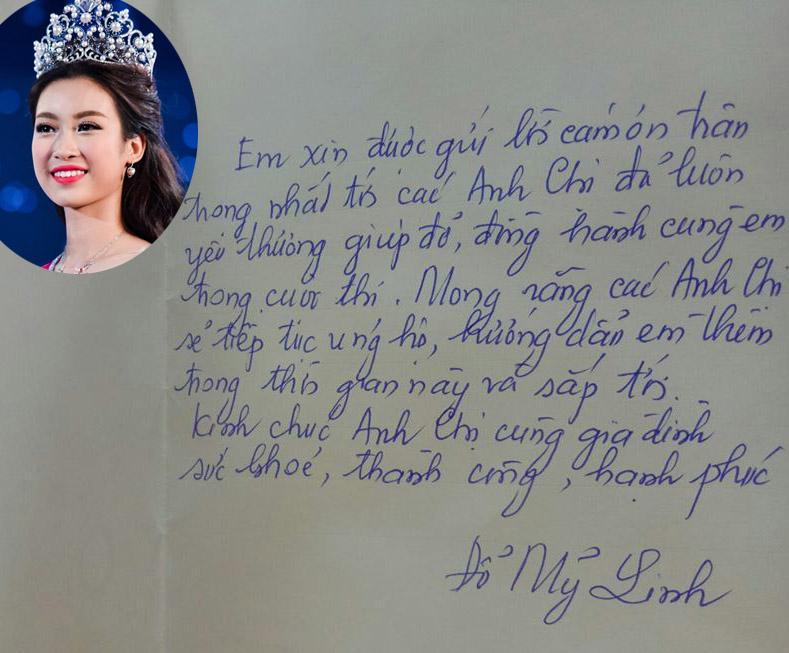 Em xin được gửi lời cám ơn trân
trọng nhất tới các Anh Chị đã luôn
yêu thương giúp đỡ, đồng hành cùng em
trong cuộc thi. Mong rằng các Anh Chị
sẽ tiếp tục ủng hộ, hướng dẫn em thêm
trong thời gian này và sắp tới.
Kính chúc Anh Chị cùng gia đình
sức khoẻ, thành công, hạnh phúc
Đỗ Mỹ Linh